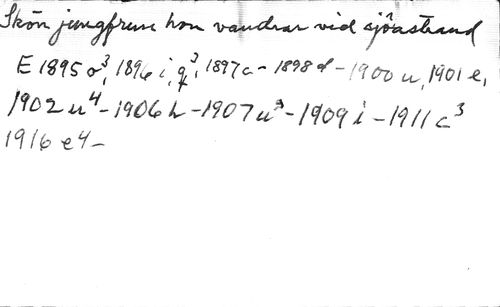 Skön jungfrun hon vandrar vid sjöastrand
E 1895 o³, 1896 i, q³, 1897 a - 1898 d - 1900 u, 1901 e,
1902 u⁴ - 1906 h - 1907 u³ - 1909 i - 1911 c³
1916 e4 -